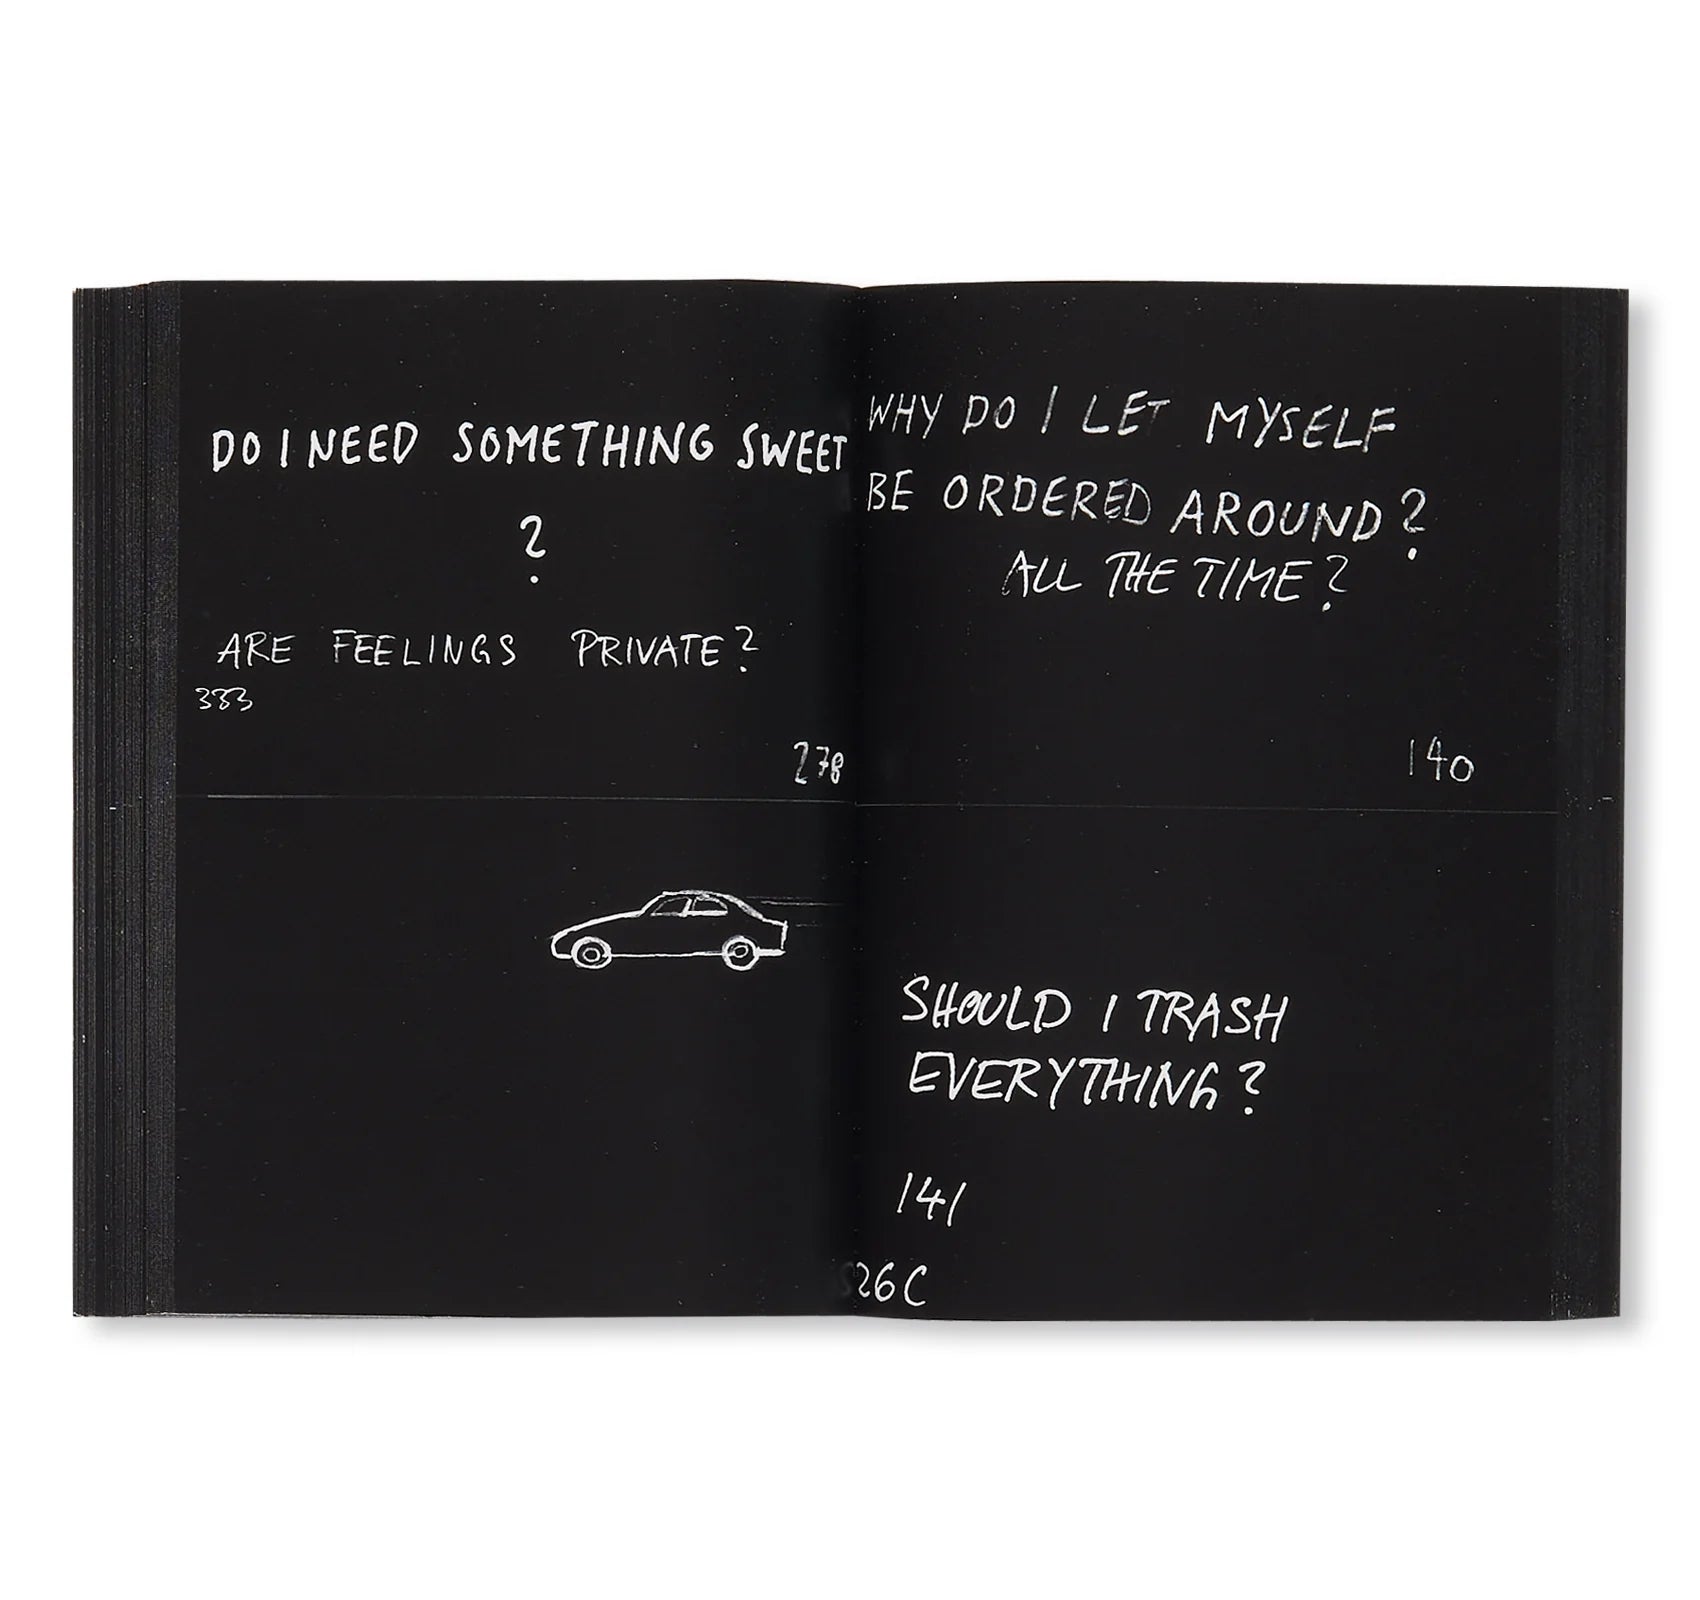 DO I NEED SOMETHING SWEET
?
ARE FEELINGS PRIVATE?
333
278
WHY DO I LET MYSELF
BE ORDERED AROUND?
ALL THE TIME?
140
SHOULD I TRASH
EVERYTHING?
141
26C